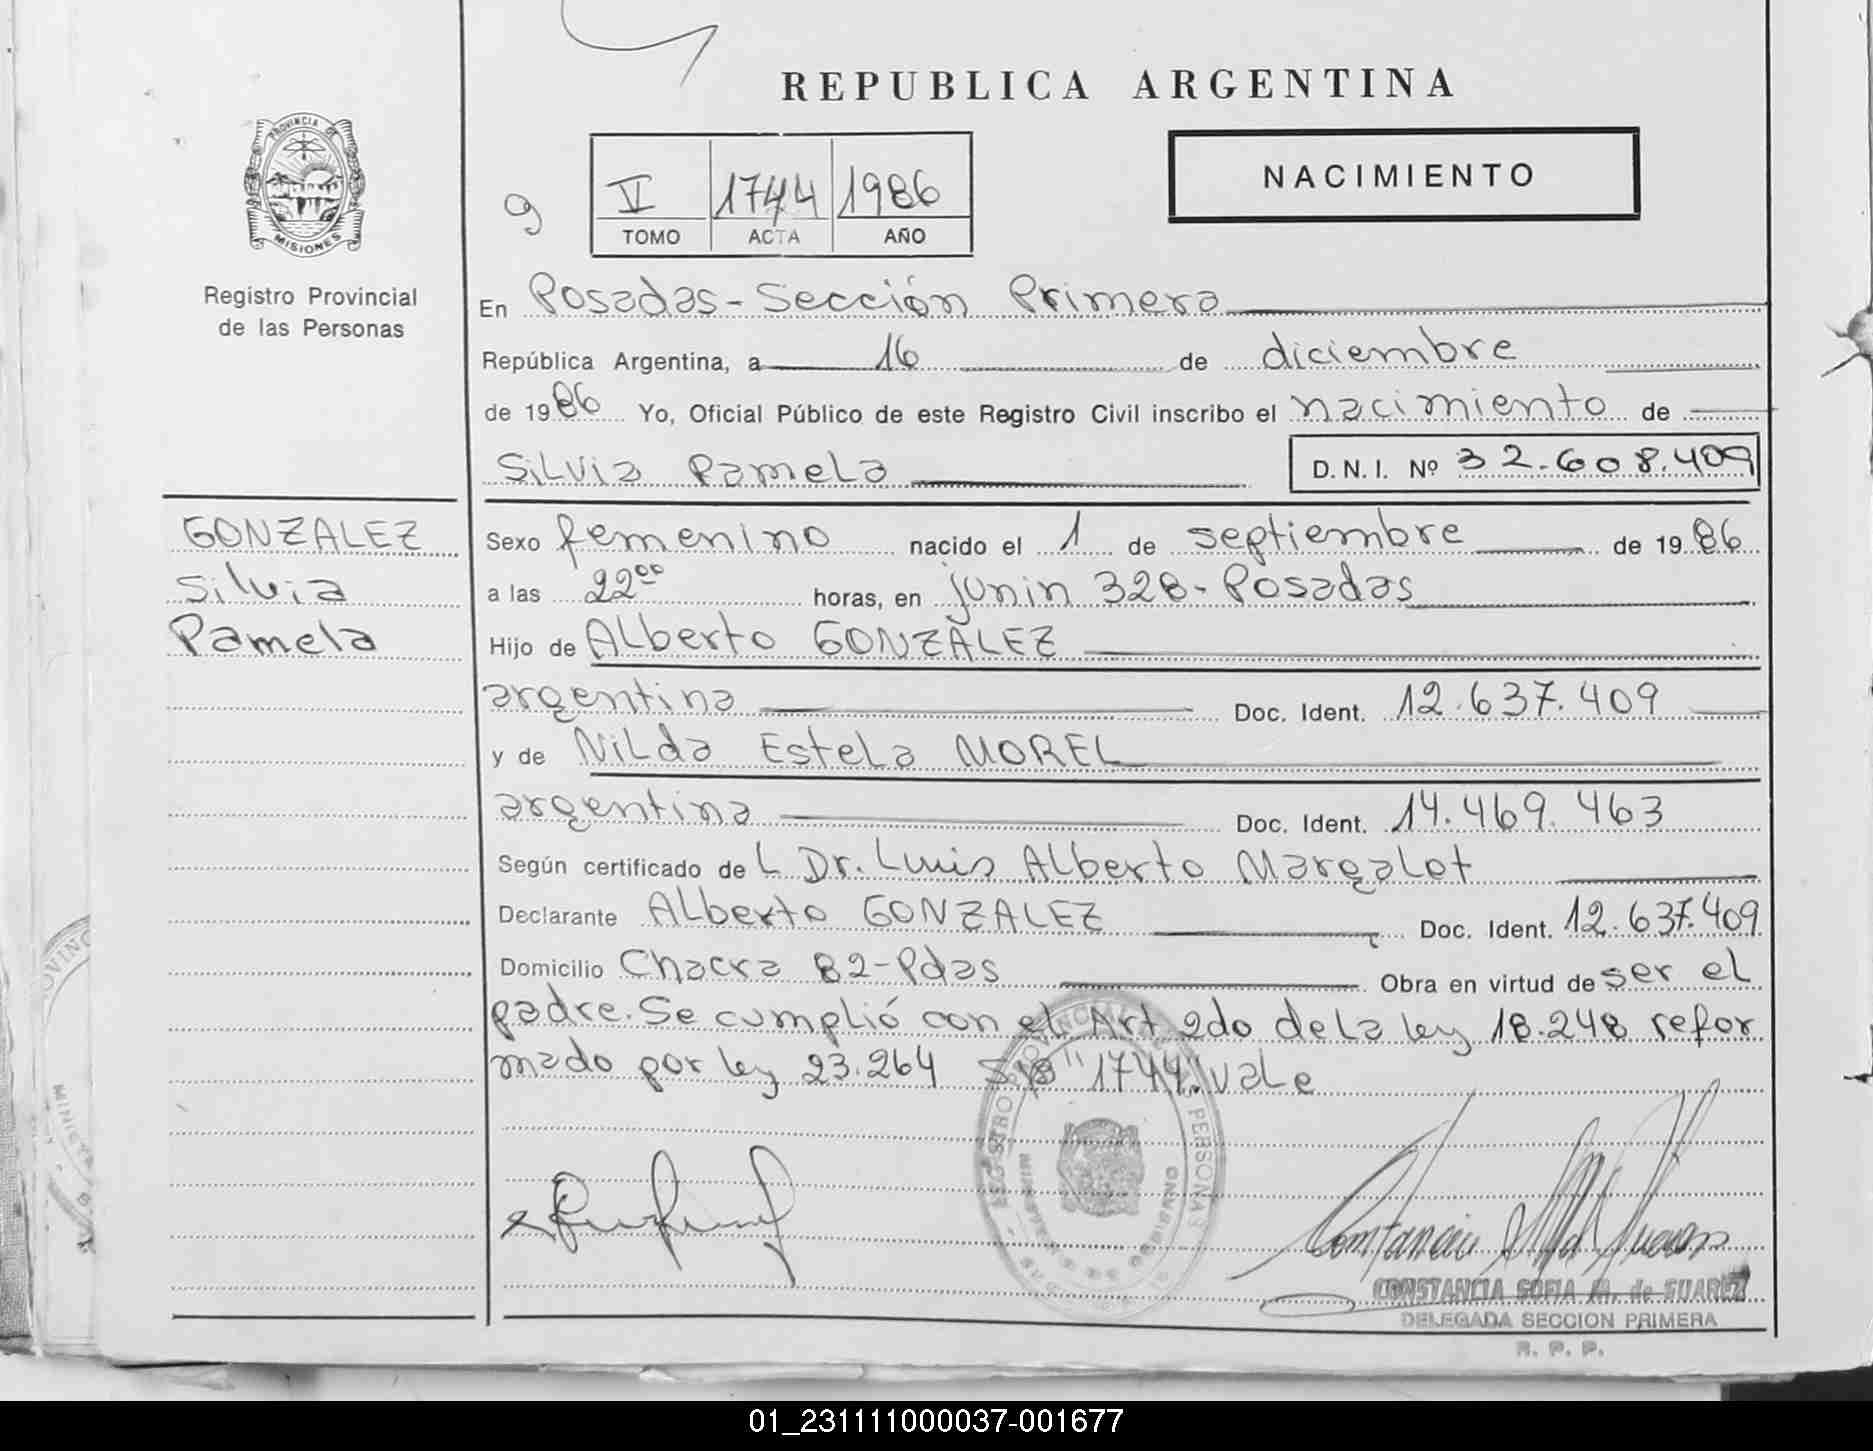 REPUBLICA ARGENTINA
PROVINCIA DE
MISIONES
Registro Provincial
de las Personas
9
V 1744 1986
TOMO ACTA AÑO
NACIMIENTO
En Posadas - Sección Primera
República Argentina, a 16 de diciembre
de 1986 Yo, Oficial Público de este Registro Civil inscribo el nacimiento de
Silvia Pamela D.N.I. Nº 32.608.409
GONZALEZ
Silvia
Pamela
Sexo femenino nacido el 1 de septiembre de 1986
a las 22⁰⁰ horas, en junin 328 - Posadas
Hijo de Alberto GONZALEZ
argentina Doc. Ident. 12.637.409
y de Nilda Estela MOREL
argentina Doc. Ident. 14.469.463
Según certificado del Dr. Luis Alberto Margalot
Declarante Alberto GONZALEZ Doc. Ident. 12.637.409
Domicilio Chacra 82-Pdas Obra en virtud de ser el
padre. Se cumplió con el Art 2do de la ley 18.248 refor
mado por ley 23.264 S/B "1744". Vale
Constancia
CONSTANCIA SOFIA M. de SUAREZ
DELEGADA SECCION PRIMERA
R. P. P.
01_231111000037-001677